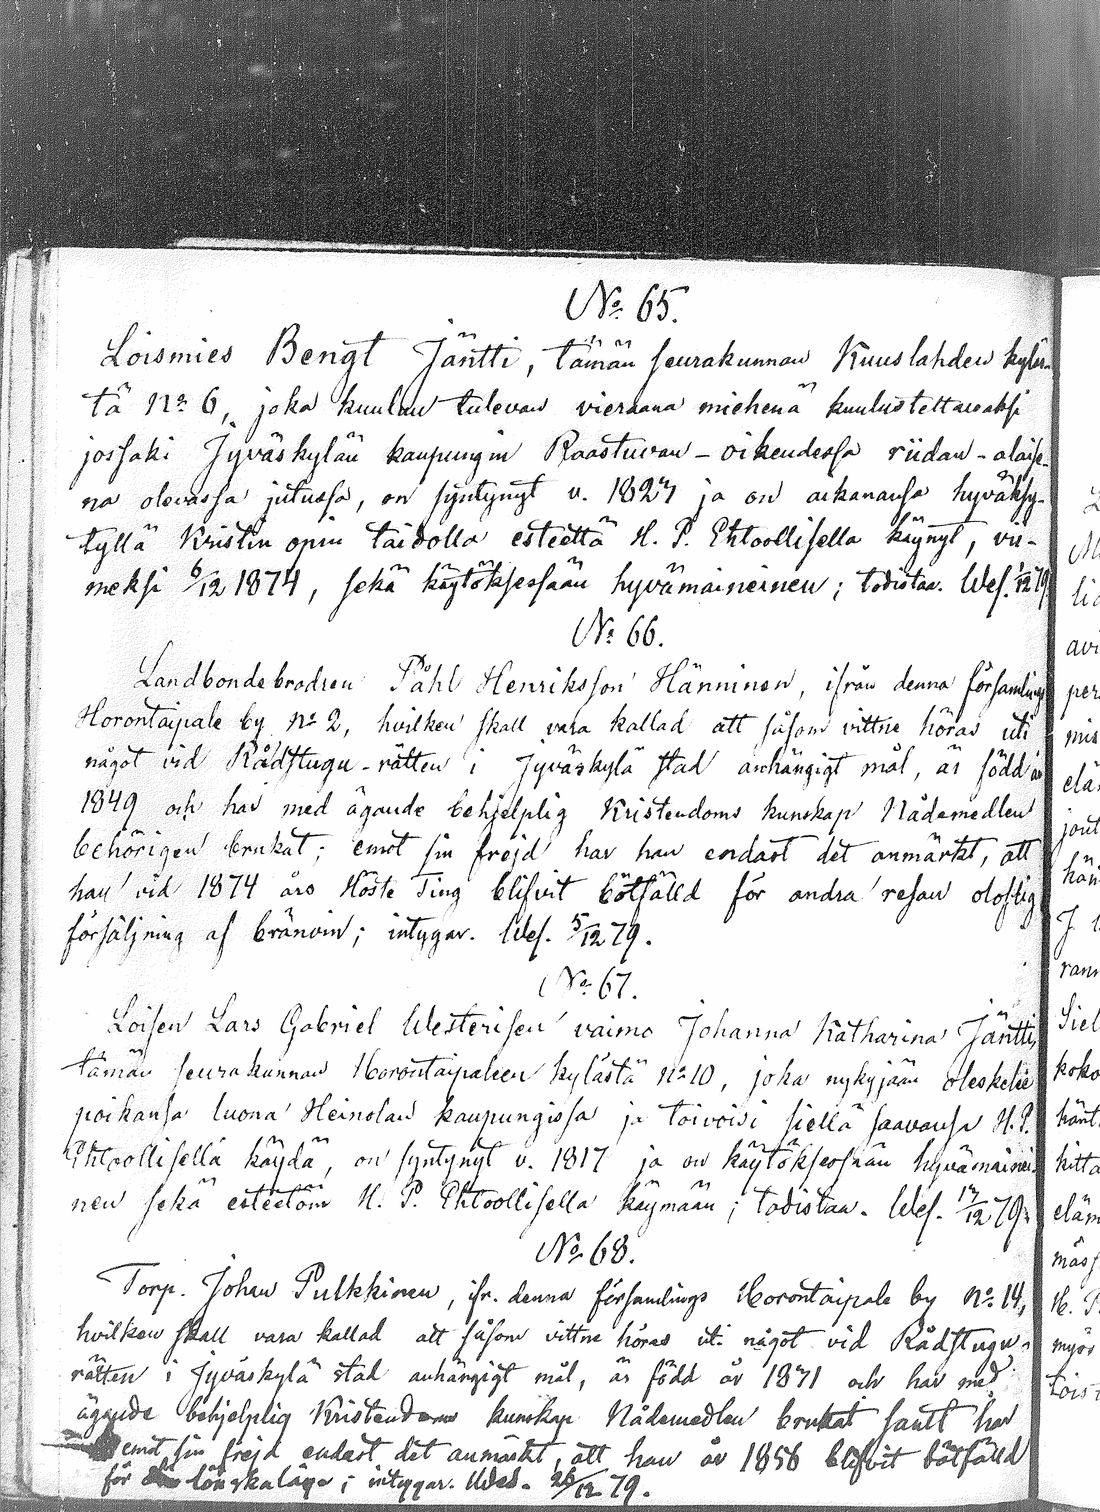 No 65.
Loismies Bengt Jäntti, tämän seurakunnan Kuuslahden kyläs-
tä No 6, joka kuuluu tulevan vieraana miehenä kuulustettavaksi
jossaki Jyväskylän kaupungin Raastuvan-oikeudessa riidan-alaise-
na olevassa jutussa, on syntynyt v. 1827 ja on aikanansa hyväksy-
tyllä Kristin opin taidolla esteettä H. P. Ehtoollisella käynyt, vii-
meksi 6/12 1874, sekä käytöksessään hyvämaineinen; todistaa. Wes. 1/12 79
No 66.
Landbondebrodren Påhl Henriksson Hänninen, ifrån denna församlings
Horontaipale by No 2, hvilken skall vara kallad att såsom vittne höras uti
något vid Rådstugu-rätten i Jyväskylä stad anhängigt mål, är född år
1849 och har med ägande behjelplig Kristendoms kunskap Nådemedlen
behörigen brukat; emot sin frejd har han endast det anmärkt, att
han vid 1874 års Höste Ting blifvit bötfälld för andra resan oloflig
försäljning af bränvin; intygar. Wes. 5/12 79.
No 67.
Loisen Lars Gabriel Westerisen vaimo Johanna Katharina Jäntti,
tämän seurakunnan Horontaipaleen kylästä No 10, joka nykyjään oleskelee
poikansa luona Heinolan kaupungissa ja toivoisi siellä saavansa H. P.
Ehtoollisella käydä, on syntynyt v. 1817 ja on käytöksessään hyvämainei-
nen sekä esteetöin H. P. Ehtoollisella käymään; todistaa. Wes. 17/12 79.
No 68.
Torp. Johan Pulkkinen, ifr. denna församlings Horontaipale by No 14,
hvilken skall vara kallad att såsom vittne höras uti något vid Rådstugu-
rätten i Jyväskylä stad anhängigt mål, är född år 1871 och har med
ägande behjelplig Kristendoms kunskap Nådemedlen brukat samt har
emot sin frejd endast det anmärkt, att han år 1856 blifvit bötfälld
för lönskaläge; intygar. Wes. 20/12 79.